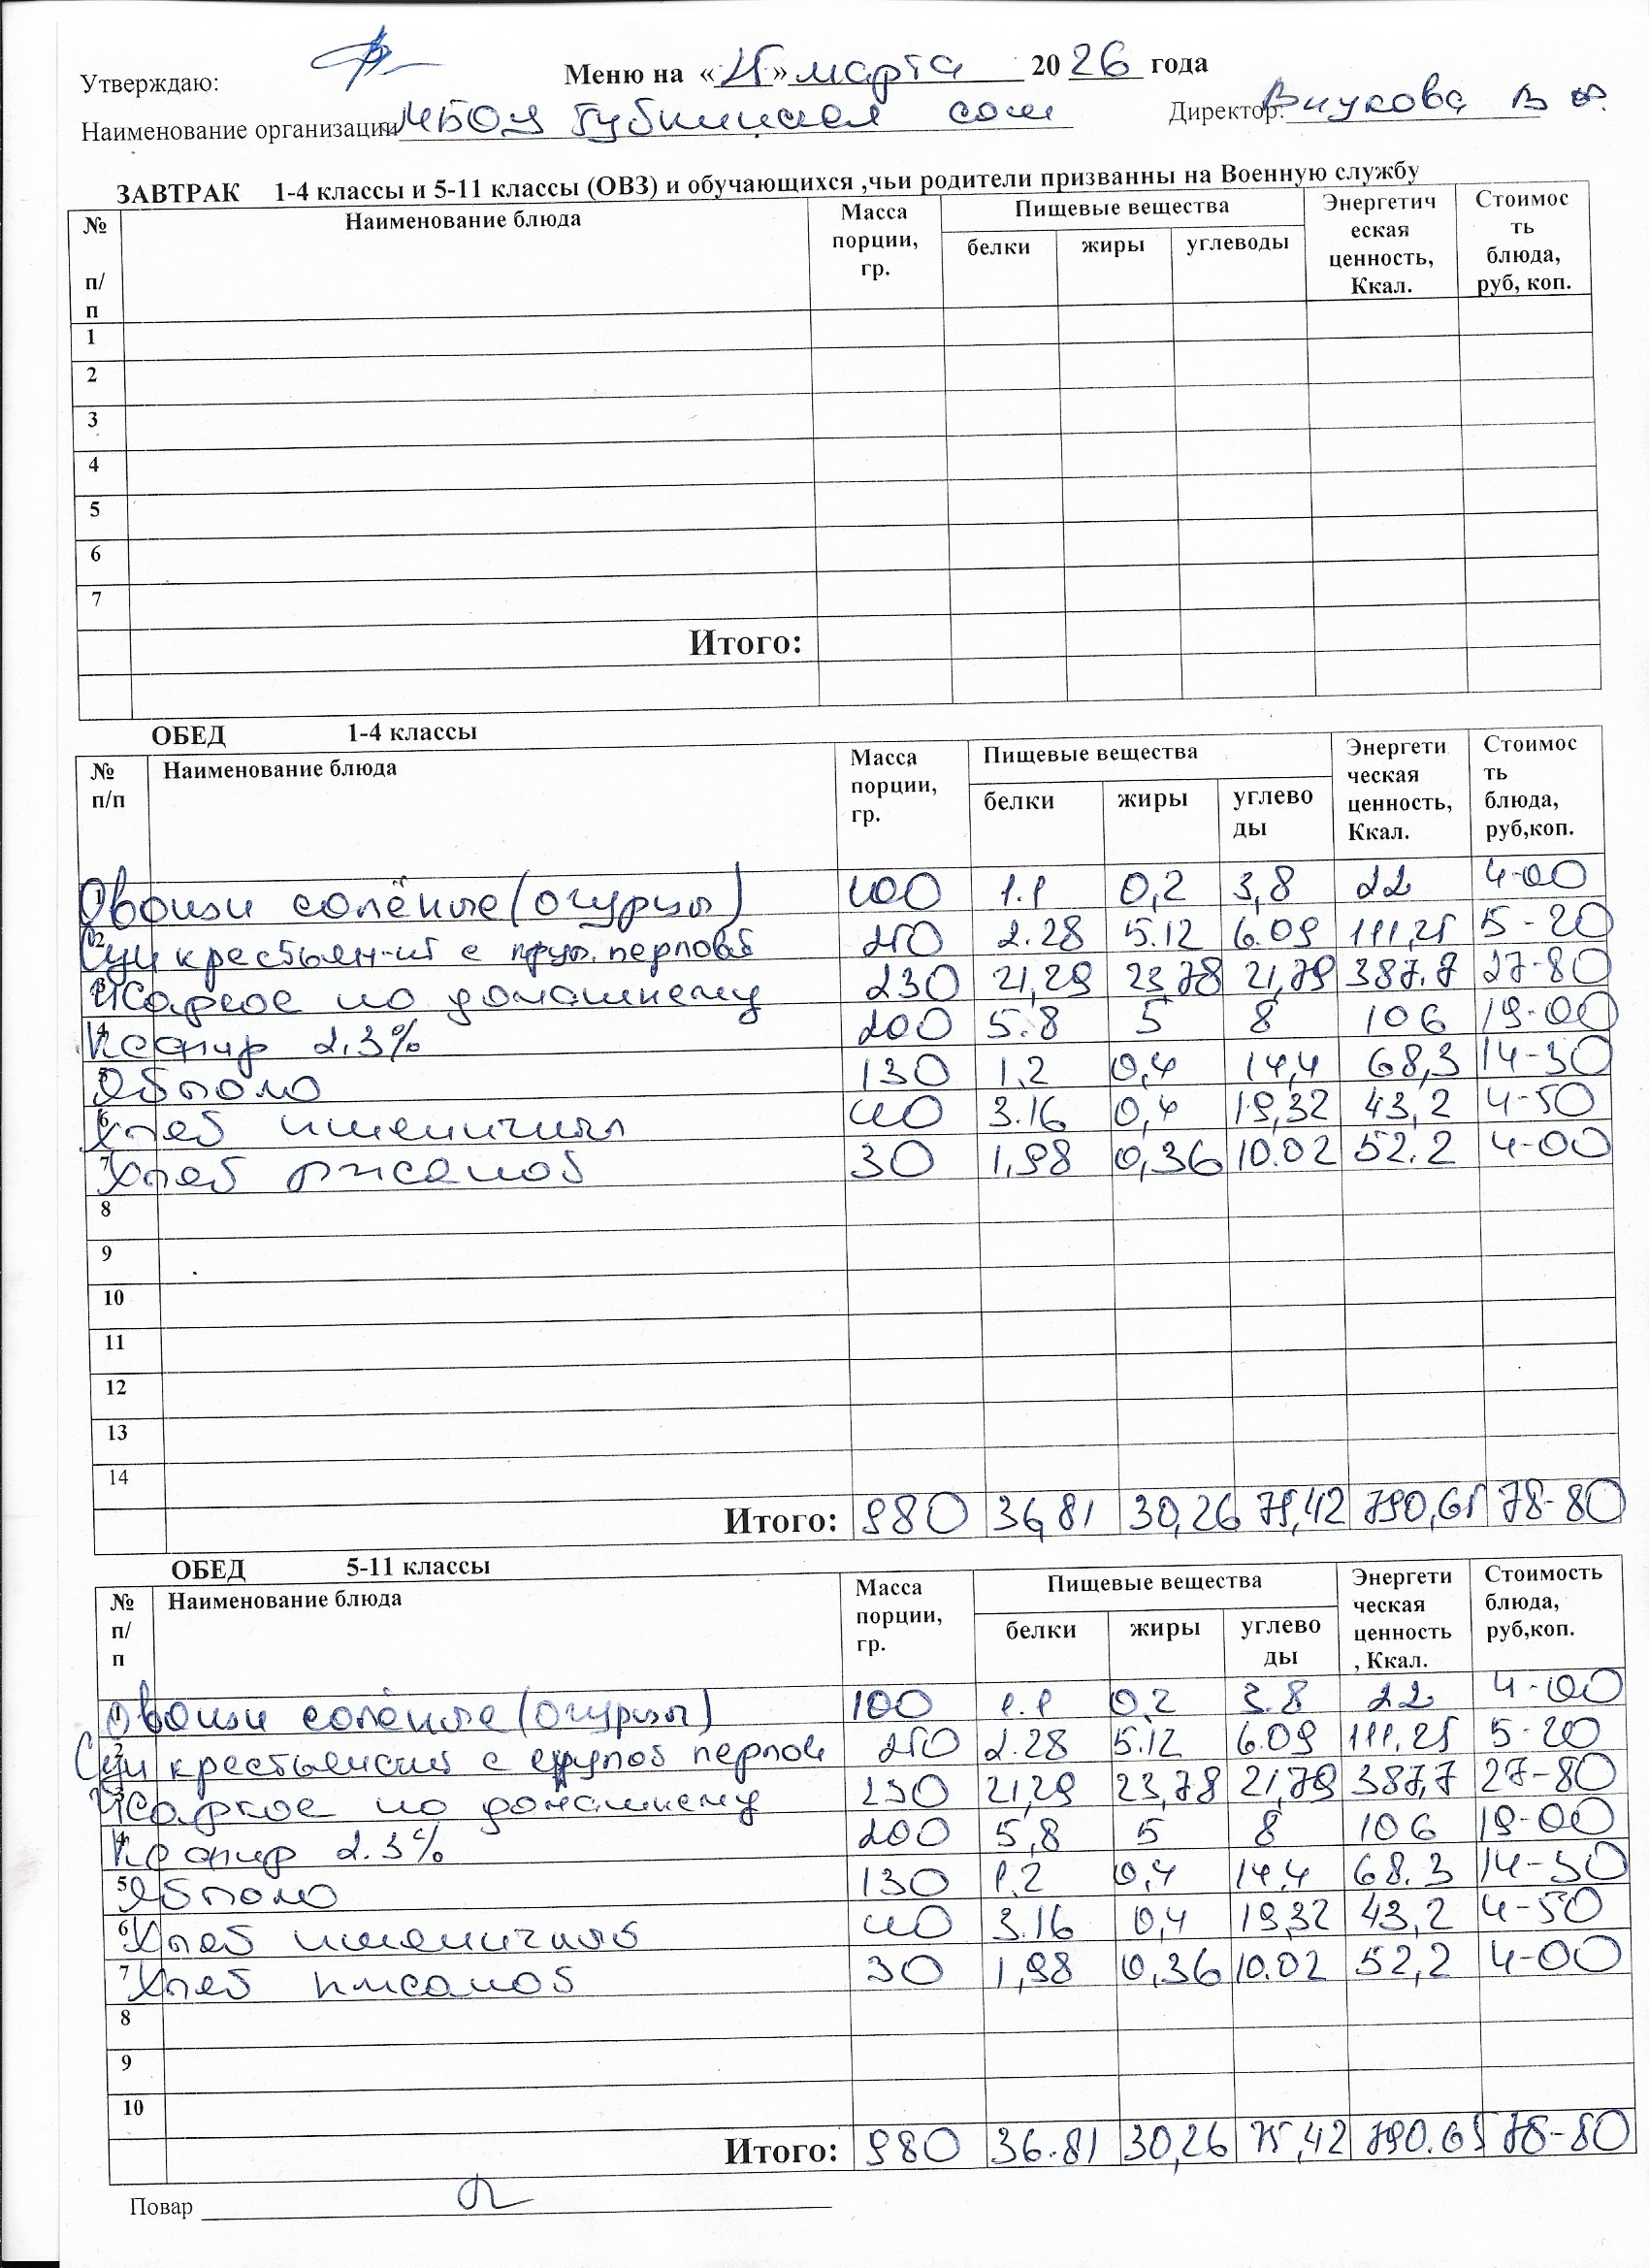 Утверждаю: Меню на « » марта 2026 года
Наименование организации МБОУ Губкинская сош Директор: Внукова В Ф.
ЗАВТРАК 1-4 классы и 5-11 классы (ОВЗ) и обучающихся ,чьи родители призванны на Военную службу
№ п/п Наименование блюда Масса порции, гр. Пищевые вещества Энергетическая ценность, Ккал. Стоимость блюда, руб, коп.
белки жиры углеводы
1
2
3
4
5
6
7
Итого:
ОБЕД 1-4 классы
№ п/п Наименование блюда Масса порции, гр. Пищевые вещества Энергетическая ценность, Ккал. Стоимость блюда, руб,коп.
белки жиры углеводы
1 Овощи солёные (огурцы) 100 1.1 0,2 3,8 22 4-00
2 Суп крестьян-ий с круп. перловой 250 2.28 5.12 6.09 111,25 5-20
3 Жаркое по домашнему 230 21,29 23,78 21,79 387.7 27-80
4 Кефир 2.3% 200 5.8 5 8 106 19-00
5 Яблоко 130 1,2 0,4 14,4 68,3 14-30
6 Хлеб пшеничный 40 3.16 0,4 19,32 43,2 4-50
7 Хлеб ржаной 30 1,98 0,36 10.02 52.2 4-00
8
9
10
11
12
13
14
Итого: 980 36,81 30,26 75,42 790,65 78-80
ОБЕД 5-11 классы
№ п/п Наименование блюда Масса порции, гр. Пищевые вещества Энергетическая ценность, Ккал. Стоимость блюда, руб,коп.
белки жиры углеводы
1 Овощи солёные (огурцы) 100 1.1 0,2 3.8 22 4-00
2 Суп крестьянский с крупой перлов 250 2.28 5.12 6.09 111.25 5-20
3 Жаркое по домашнему 230 21,29 23,78 21,79 387,7 27-80
4 Кефир 2.3% 200 5,8 5 8 106 19-00
5 Яблоко 130 1.2 0,4 14,4 68.3 14-30
6 Хлеб пшеничный 40 3.16 0,4 19,32 43,2 4-50
7 Хлеб ржаной 30 1,98 0,36 10.02 52,2 4-00
8
9
10
Итого: 980 36.81 30,26 75,42 790.65 78-80
Повар